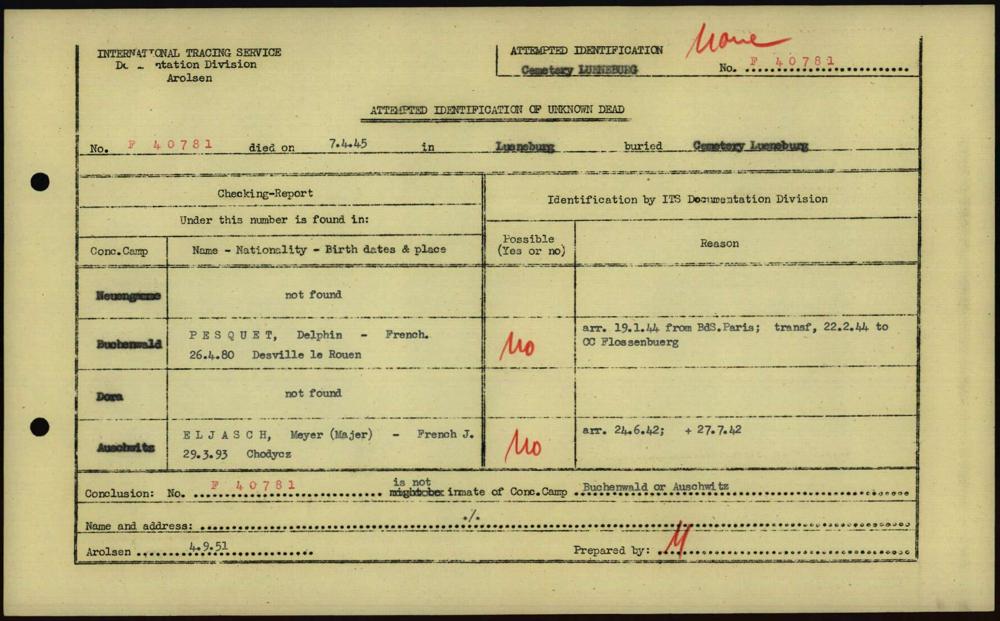 INTERNATIONAL TRACING SERVICE
Documentation Division
Arolsen
ATTEMPTED IDENTIFICATION
Cemetery LUENEBURG
None
No. F 40781
ATTEMPTED IDENTIFICATION OF UNKNOWN DEAD
No. F 40781 died on 7.4.45 in Lueneburg buried Cemetery Lueneburg
Checking-Report
Under this number is found in:
Identification by ITS Documentation Division
Conc.Camp
Name - Nationality - Birth dates & place
Possible
(Yes or no)
Reason
Neuengamme
not found
Buchenwald
PESQUET, Delphin - French.
26.4.80 Desville le Rouen
No
arr. 19.1.44 from BdS.Paris; transf, 22.2.44 to
CC Flossenbuerg
Dora
not found
Auschwitz
ELJASCH, Meyer (Majer) - French J.
29.3.93 Chodycz
No
arr. 24.6.42; + 27.7.42
Conclusion: No. F 40781 is not inmate of Conc.Camp Buchenwald or Auschwitz
Name and address: ./.
Arolsen 4.9.51
Prepared by: